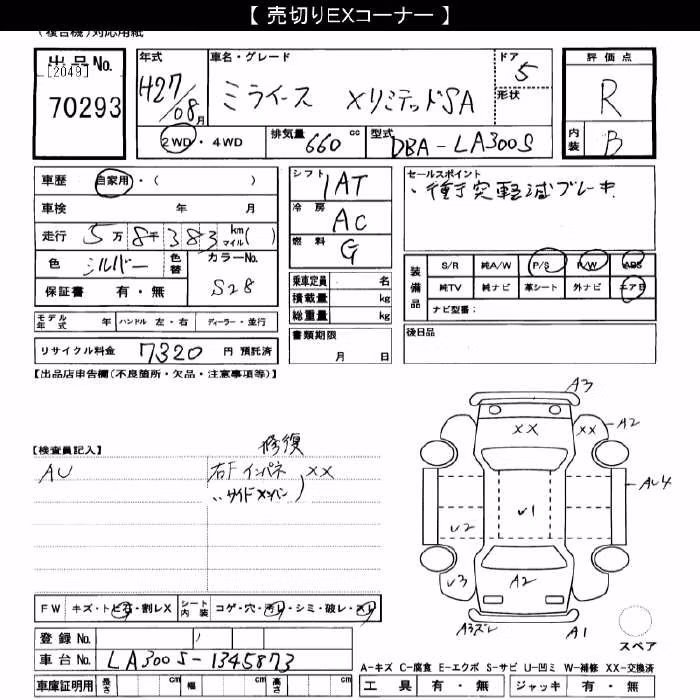 【 売切りEXコーナー 】
(複合機)対応用紙
出品No.
[2049]
70293
年式
H27/08月
車名・グレード
ミライース XリミテッドSA
ドア
5
形状
評価点
R
内装
B
2WD・4WD
排気量 660 cc
型式 DBA-LA300S
車歴 自家用・( )
車検 年 月
走行 5万8千383 km マイル( )
色 シルバー 色替
カラーNo. S28
保証書 有・無
シフト 1AT
冷房 AC
燃料 G
乗車定員 名
積載量 kg
総重量 kg
書類期限
月 日
セールスポイント
・衝突軽減ブレーキ
装備品
S/R 純A/W P/S P/W ABS
純TV 純ナビ 革シート 外ナビ エアB
ナビ型番:
後日品
モデル年式 年 ハンドル 左・右 ディーラー・並行
リサイクル料金 7320 円 預託済
【出品店申告欄(不良箇所・欠品・注意事項等)】
【検査員記入】
AU
修復
右Fインパネ XX
〃サイドメンバン
A3
A2
XX
XX
AU4
U2
U1
U3
A2
A3ズレ
A1
スペア
FW キズ・トビ石・割レX
シート内装 コゲ・穴・汚レ・シミ・破レ・スレ
登録No.
車台No. LA300S-1345873
車庫証明用 長さ cm 幅 cm 高さ cm
A-キズ C-腐食 E-エクボ S-サビ U-凹ミ W-補修 XX-交換済
工具 有・無 ジャッキ 有・無